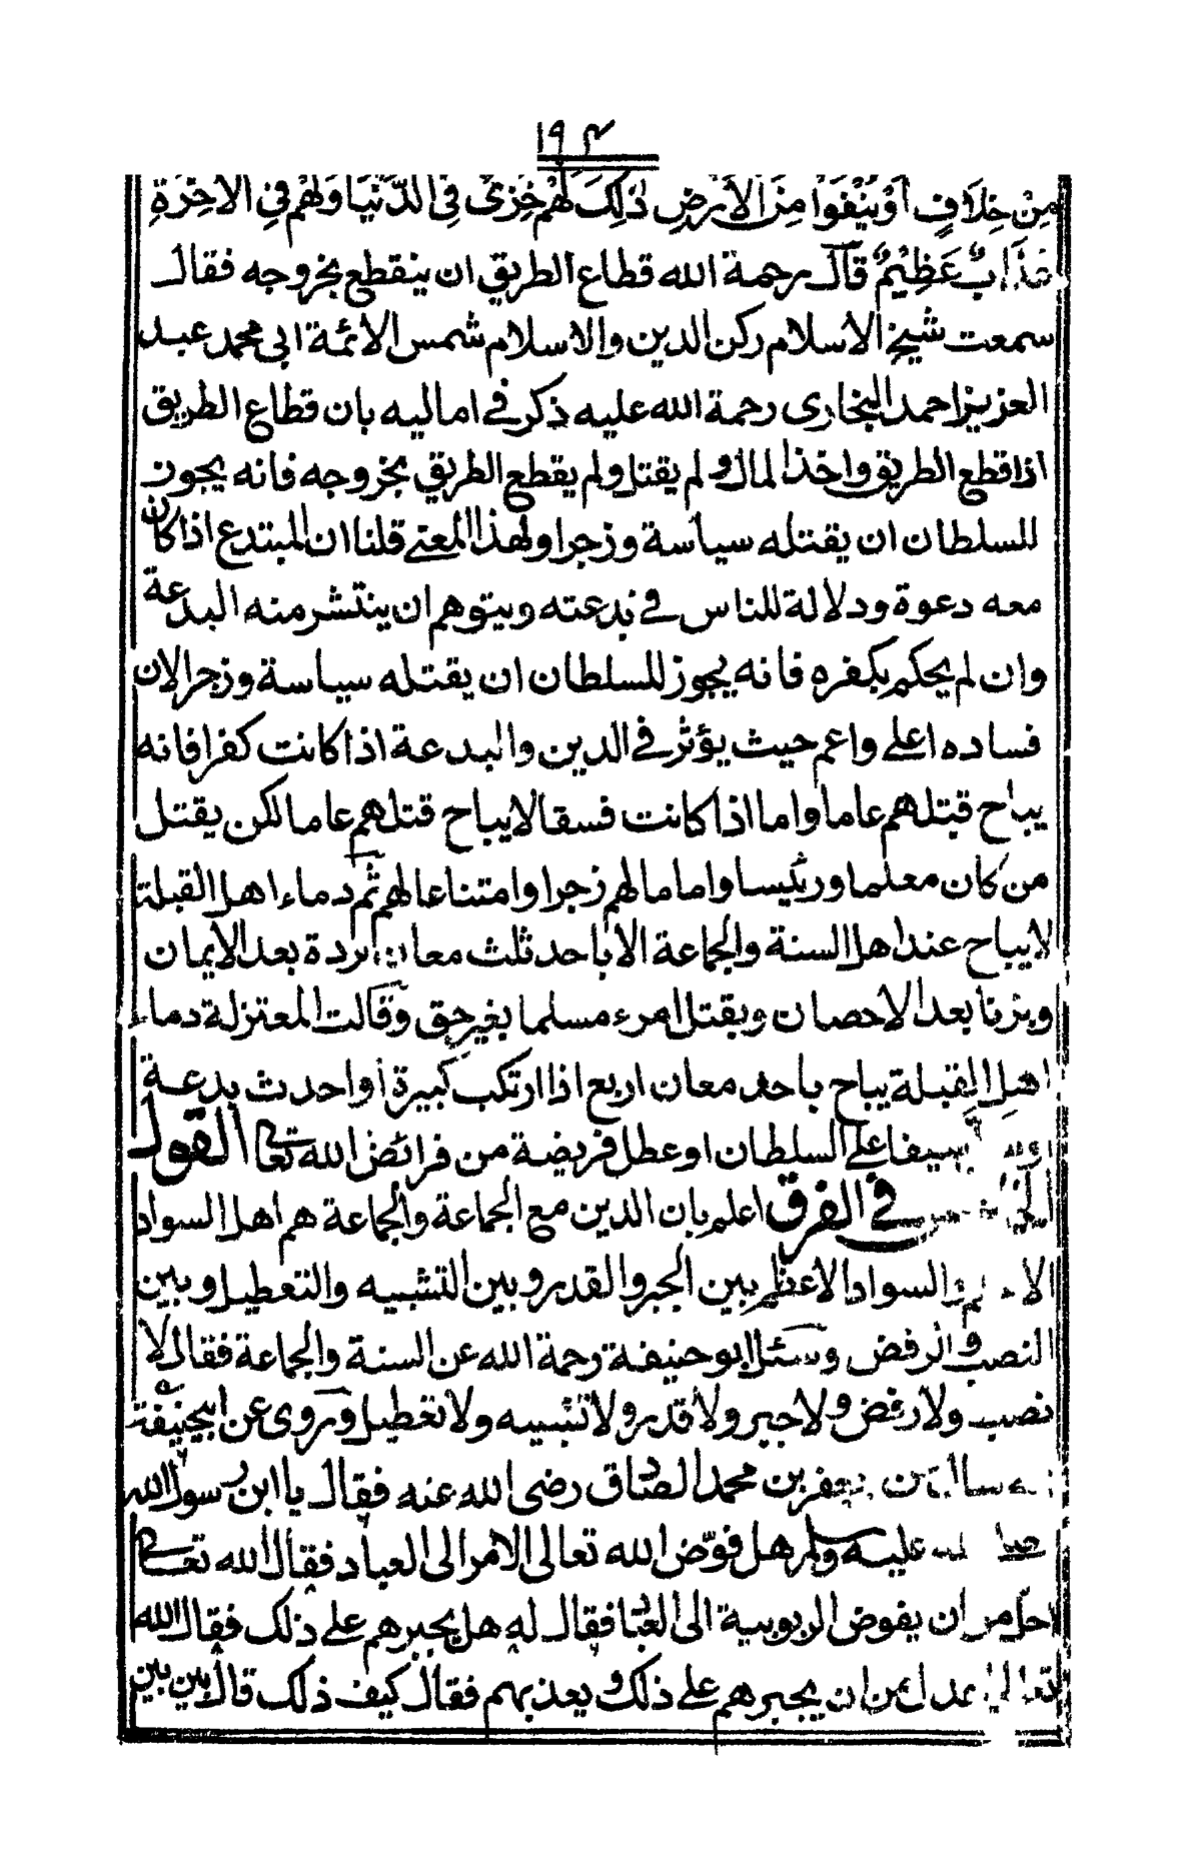 ١٩٣
مِنْ خِلَافٍ اَوْ يُنْفَوْا مِنَ الْاَرْضِ ذٰلِكَ لَهُمْ خِزْىٌ فِى الدُّنْيَا وَلَهُمْ فِى الْاٰخِرَةِ
عَذَابٌ عَظِيْمٌ قال رحمة الله قطاع الطريق ان ينقطع بخروجه فقال
سمعت شيخ الاسلام ركن الدين والاسلام شمس الائمة ابى محمد عبد
العزيز احمد البخارى رحمة الله عليه ذكر في اماليه بان قطاع الطريق
اذا قطع الطريق واخذ المال ولم يقتل ولم يقطع الطريق بخروجه فانه يجوز
للسلطان ان يقتله سياسة وزجرا ولهذا المعنى قلنا ان المبتدع اذا كان
معه دعوة ودلالة للناس في بدعته ويتوهم ان ينتشر منه البدعة
وان لم يحكم بكفره فانه يجوز للسلطان ان يقتله سياسة وزجرا لان
فساده اعلى واعم حيث يؤثر في الدين والبدعة اذا كانت كفرا فانه
يباح قتلهم عاما واما اذا كانت فسقا لايباح قتلهم عاما لكن يقتل
من كان معلما ورئيسا واماما لهم زجرا وامتناعا لهم ثم دماء اهل القبلة
لايباح عند اهل السنة والجماعة الا باحد ثلث معان بردة بعد الايمان
وبزنا بعد الاحصان وبقتل امرء مسلما بغير حق وقالت المعتزلة دماء
اهل القبلة يباح باحد معان اربع اذا ارتكب كبيرة او احدث بدعة
سيفا على السلطان او عطل فريضة من فرائض الله تعالى القول
في الفرق اعلم بان الدين مع الجماعة والجماعة هم اهل السواد
والسواد الاعظم بين الجبر والقدر وبين التشبيه والتعطيل وبين
النصب والرفض وسئل ابو حنيفة رحمة الله عن السنة والجماعة فقال لا
نصب ولا رفض ولا جبر ولا قدر ولا تشبيه ولا تعطيل وروى عن ابيحنيفة
جعفر بن محمد الصادق رضى الله عنه فقال يا ابن رسول الله
صلى الله عليه وسلم هل فوّض الله تعالى الامر الى العباد فقال الله تعالى
اجل من ان يفوض الربوبية الى العباد فقال له هل يجبرهم على ذلك فقال الله
تعالى اعدل من ان يجبرهم على ذلك ويعذبهم فقال كيف ذلك قال بين بين